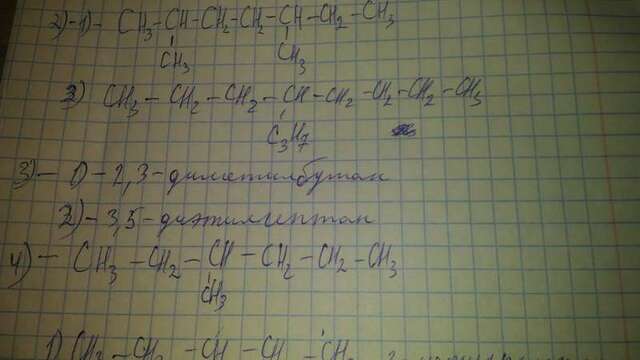 2)-1)- CH3-CH-CH2-CH2-CH-CH2-CH3
CH3 CH3
2) CH3-CH2-CH2-CH-CH2-CH2-CH2-CH3
C3H7
3)- 1)-2,3-диметилбутан
2)-3,5-диэтилгептан
4)- CH3-CH2-CH-CH2-CH2-CH3
CH3
1) CH3-CH2-CH-CH-CH3